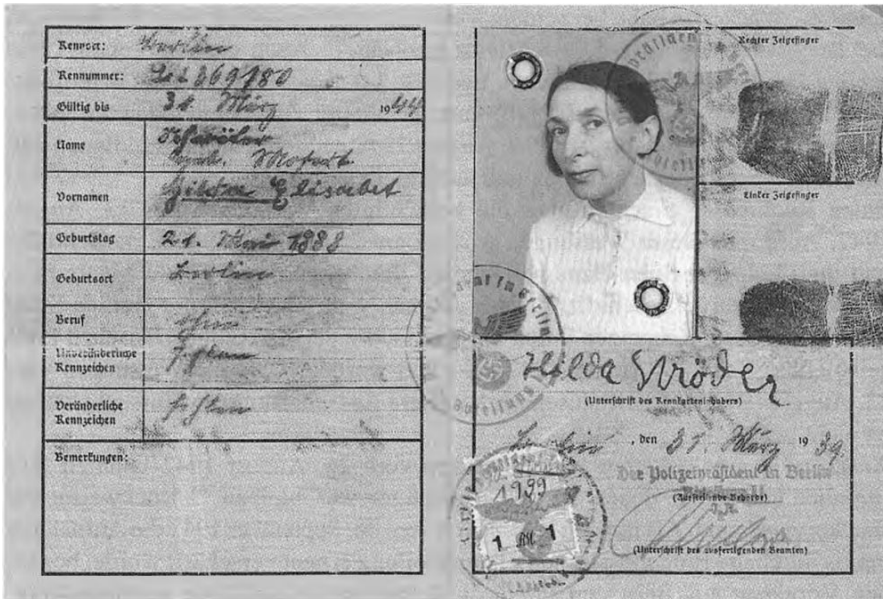 Kennort: Berlin
Kennummer: 269180
Gültig bis 31. März 1944
Name
geb. 
Vornamen Hilda Elisabet
Geburtstag 21. Mai 1888
Geburtsort Berlin
Beruf ohne
Unveränderliche
Kennzeichen fehlen
Veränderliche
Kennzeichen fehlen
Bemerkungen:
Rechter Zeigefinger
Linker Zeigefinger
Hilda
(Unterschrift des Kennkarteninhabers)
Berlin, den 31. März 1939.
Der Polizeipräsident in Berlin
(Ausstellende Behörde)
1 RM 1
(Unterschrift des ausfertigenden Beamten)